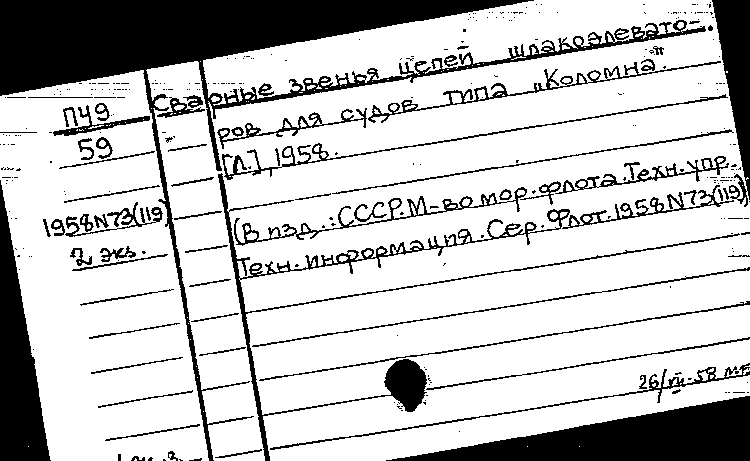 П49 Сварные звенья цепей шлакоэлевато-
59 ров для судов типа „Коломна".
[Л.], 1958.
1958N73(119) (В изд.: СССР. М-во мор. флота. Техн. упр.
2 экз. Техн. информация. Сер. Флот. 1958 N73(119)
26/VII-58